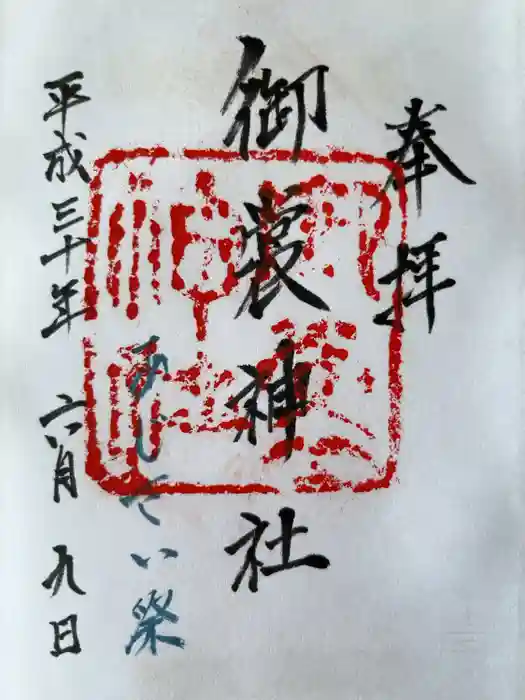 奉拝
御裳神社
あじさい祭
平成三十年 六月 九日